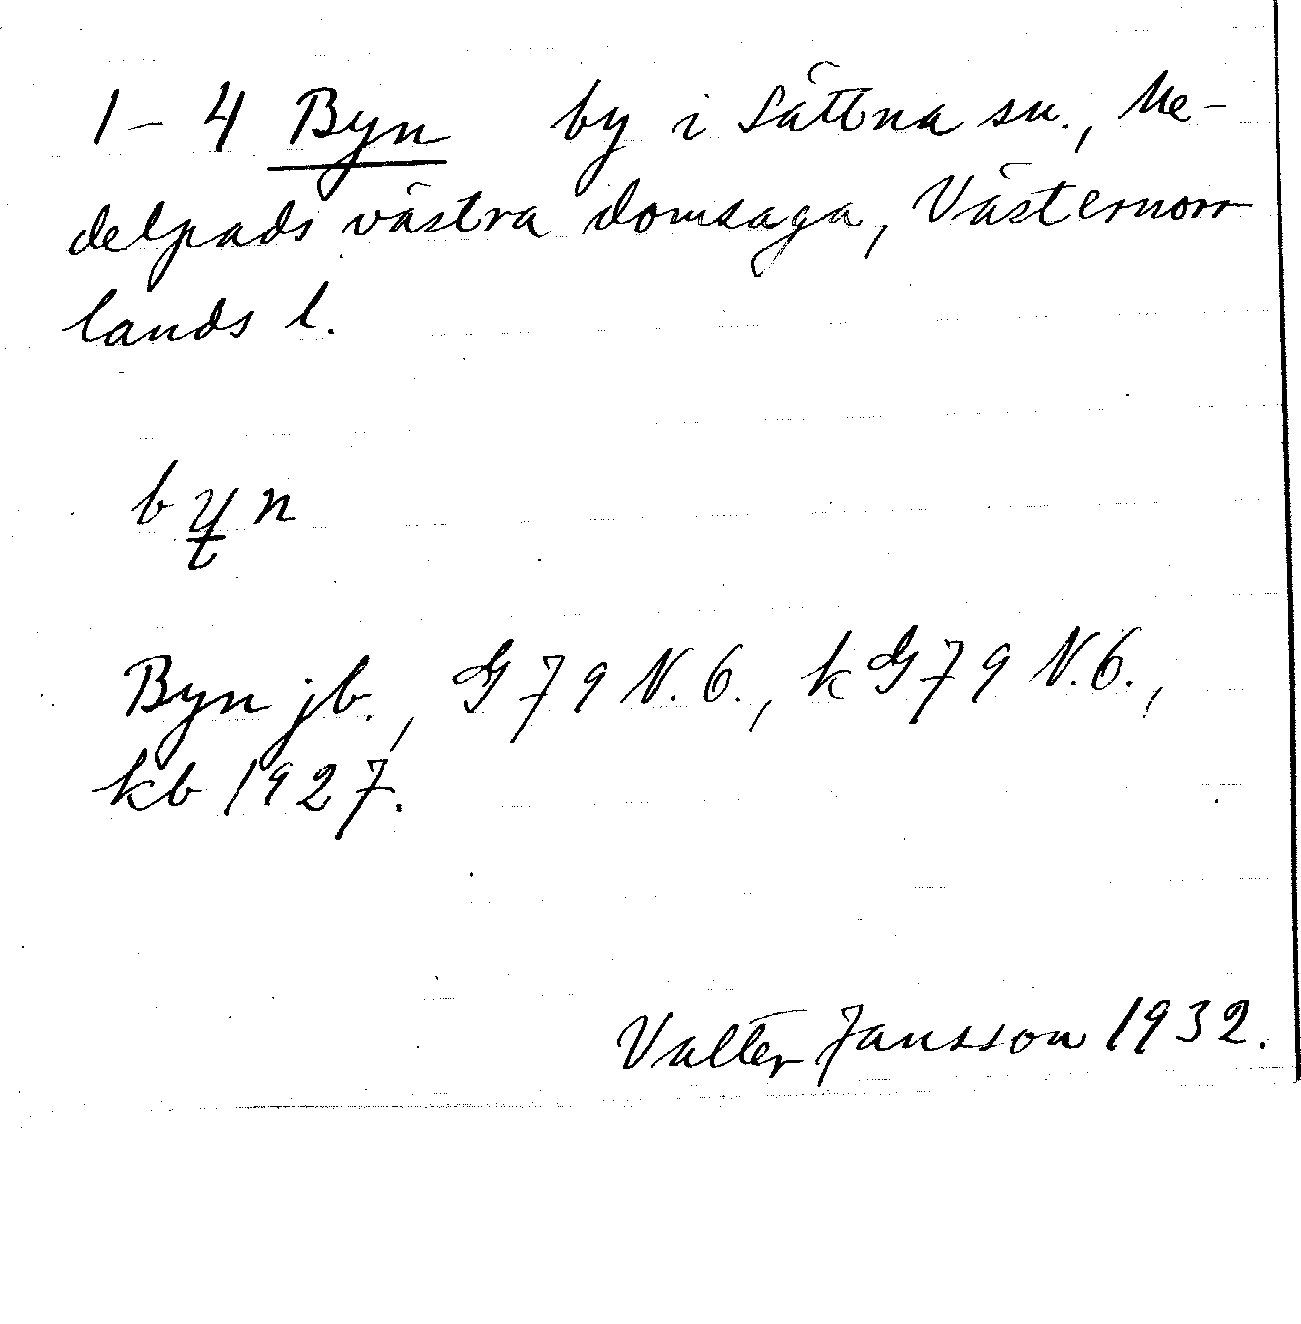 1–4 Byn by i Sättna sn., Me-
delpads västra domsaga, Västernorr
lands l.
byn
Byn jb., G J 9 N. 6., k G J 9 N. 6.,
kb 1927.
Valter Jansson 1932.